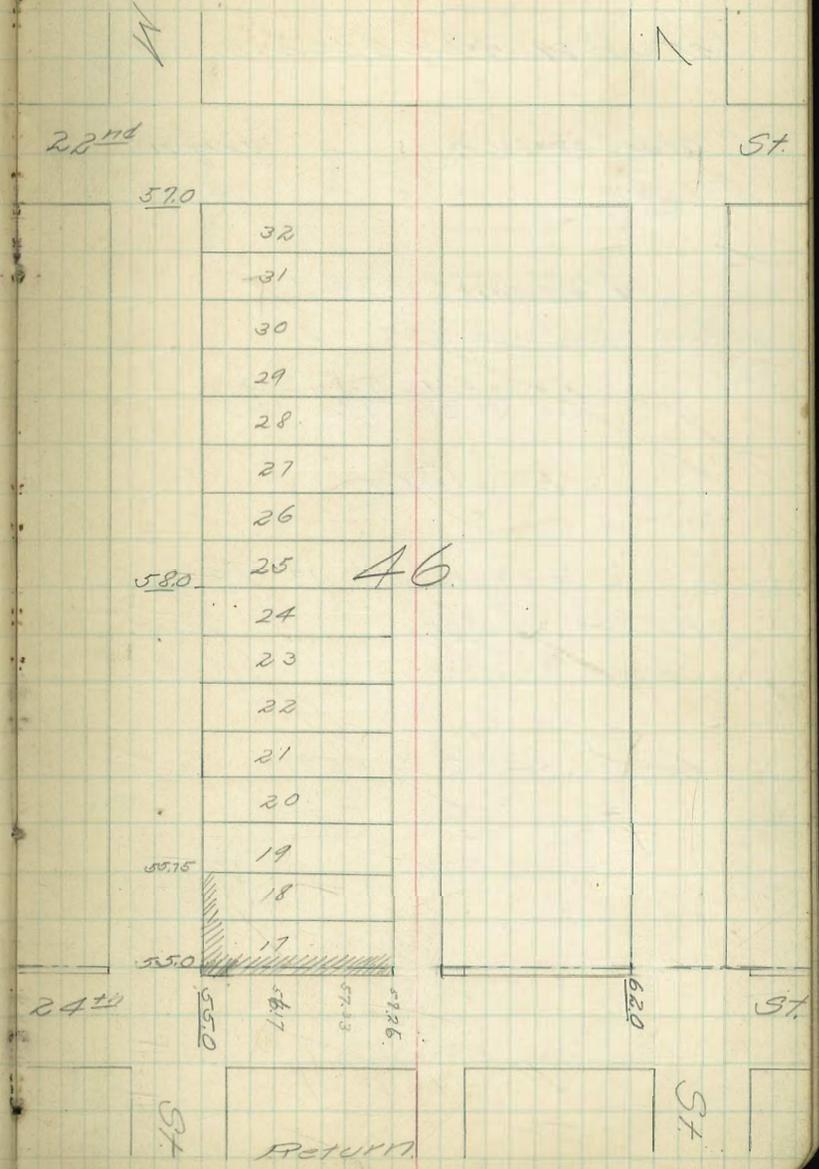 M L
22nd St.
57.0
32
31
30
29
28
27
26
25
58.0 46
24
23
22
21
20
19
55.75
18
17
55.0
24th St.
55.0 56.17 57.33 58.26 62.0
St. St.
Return